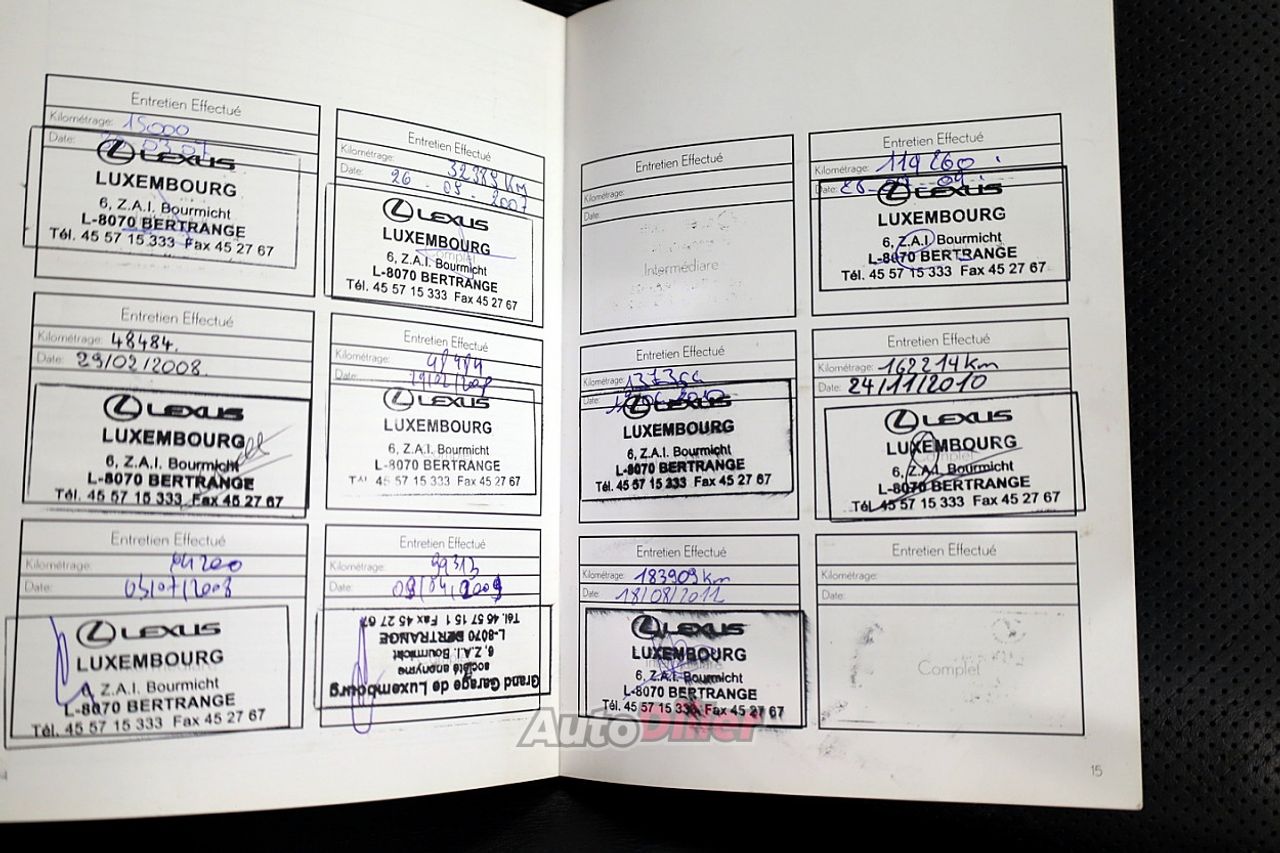 Entretien Effectué
Kilométrage: 15000
Date: 03.07
LEXUS
LUXEMBOURG
6, Z.A.I. Bourmicht
L-8070 BERTRANGE
Tél. 45 57 15 333 Fax 45 27 67
Entretien Effectué
Kilométrage: 32389 KM
Date: 26 - 09 - 2007
LEXUS
LUXEMBOURG
Complet
6, Z.A.I. Bourmicht
L-8070 BERTRANGE
Tél. 45 57 15 333 Fax 45 27 67
Entretien Effectué
Kilométrage: 48484.
Date: 29/02/2008.
LEXUS
LUXEMBOURG
6, Z.A.I. Bourmicht
L-8070 BERTRANGE
Tél. 45 57 15 333 Fax 45 27 67
Entretien Effectué
Kilométrage: 48484
Date: 29/02/2008
LEXUS
LUXEMBOURG
6, Z.A.I. Bourmicht
L-8070 BERTRANGE
45 57 15 333 Fax 45 27 67
Entretien Effectué
Kilométrage: 64200
Date: 03/07/2008
LEXUS
LUXEMBOURG
Z.A.I. Bourmicht
L-8070 BERTRANGE
Tél. 45 57 15 333 Fax 45 27 67
Entretien Effectué
Kilométrage: 99313
Date: 08/04/2009
Grand Garage de Luxembourg
société anonyme
6, Z.A.I. Bourmicht
L-8070 BERTRANGE
Tél. 45 57 15 1 Fax 45 27 67
Entretien Effectué
Kilométrage:
Date:
Intermédiare
Entretien Effectué
Kilométrage: 119260
Date: 09.
LEXUS
LUXEMBOURG
6, Z.A.I. Bourmicht
L-8070 BERTRANGE
Tél. 45 57 15 333 Fax 45 27 67
Entretien Effectué
Kilométrage:
Date:
LEXUS
LUXEMBOURG
6, Z.A.I. Bourmicht
L-8070 BERTRANGE
Tél. 45 57 15 333 Fax 45 27 67
Entretien Effectué
Kilométrage: 162214km
Date: 24/11/2010
LEXUS
LUXEMBOURG
Complet
6, Z.A.I. Bourmicht
L-8070 BERTRANGE
Tél. 45 57 15 333 Fax 45 27 67
Entretien Effectué
Kilométrage: 183909km
Date: 18/08/2011
LEXUS
LUXEMBOURG
Intermédiare
6, Z.A.I. Bourmicht
L-8070 BERTRANGE
Tél. 45 57 15 333 Fax 45 27 67
Entretien Effectué
Kilométrage:
Date:
Complet
AutoDiller
15